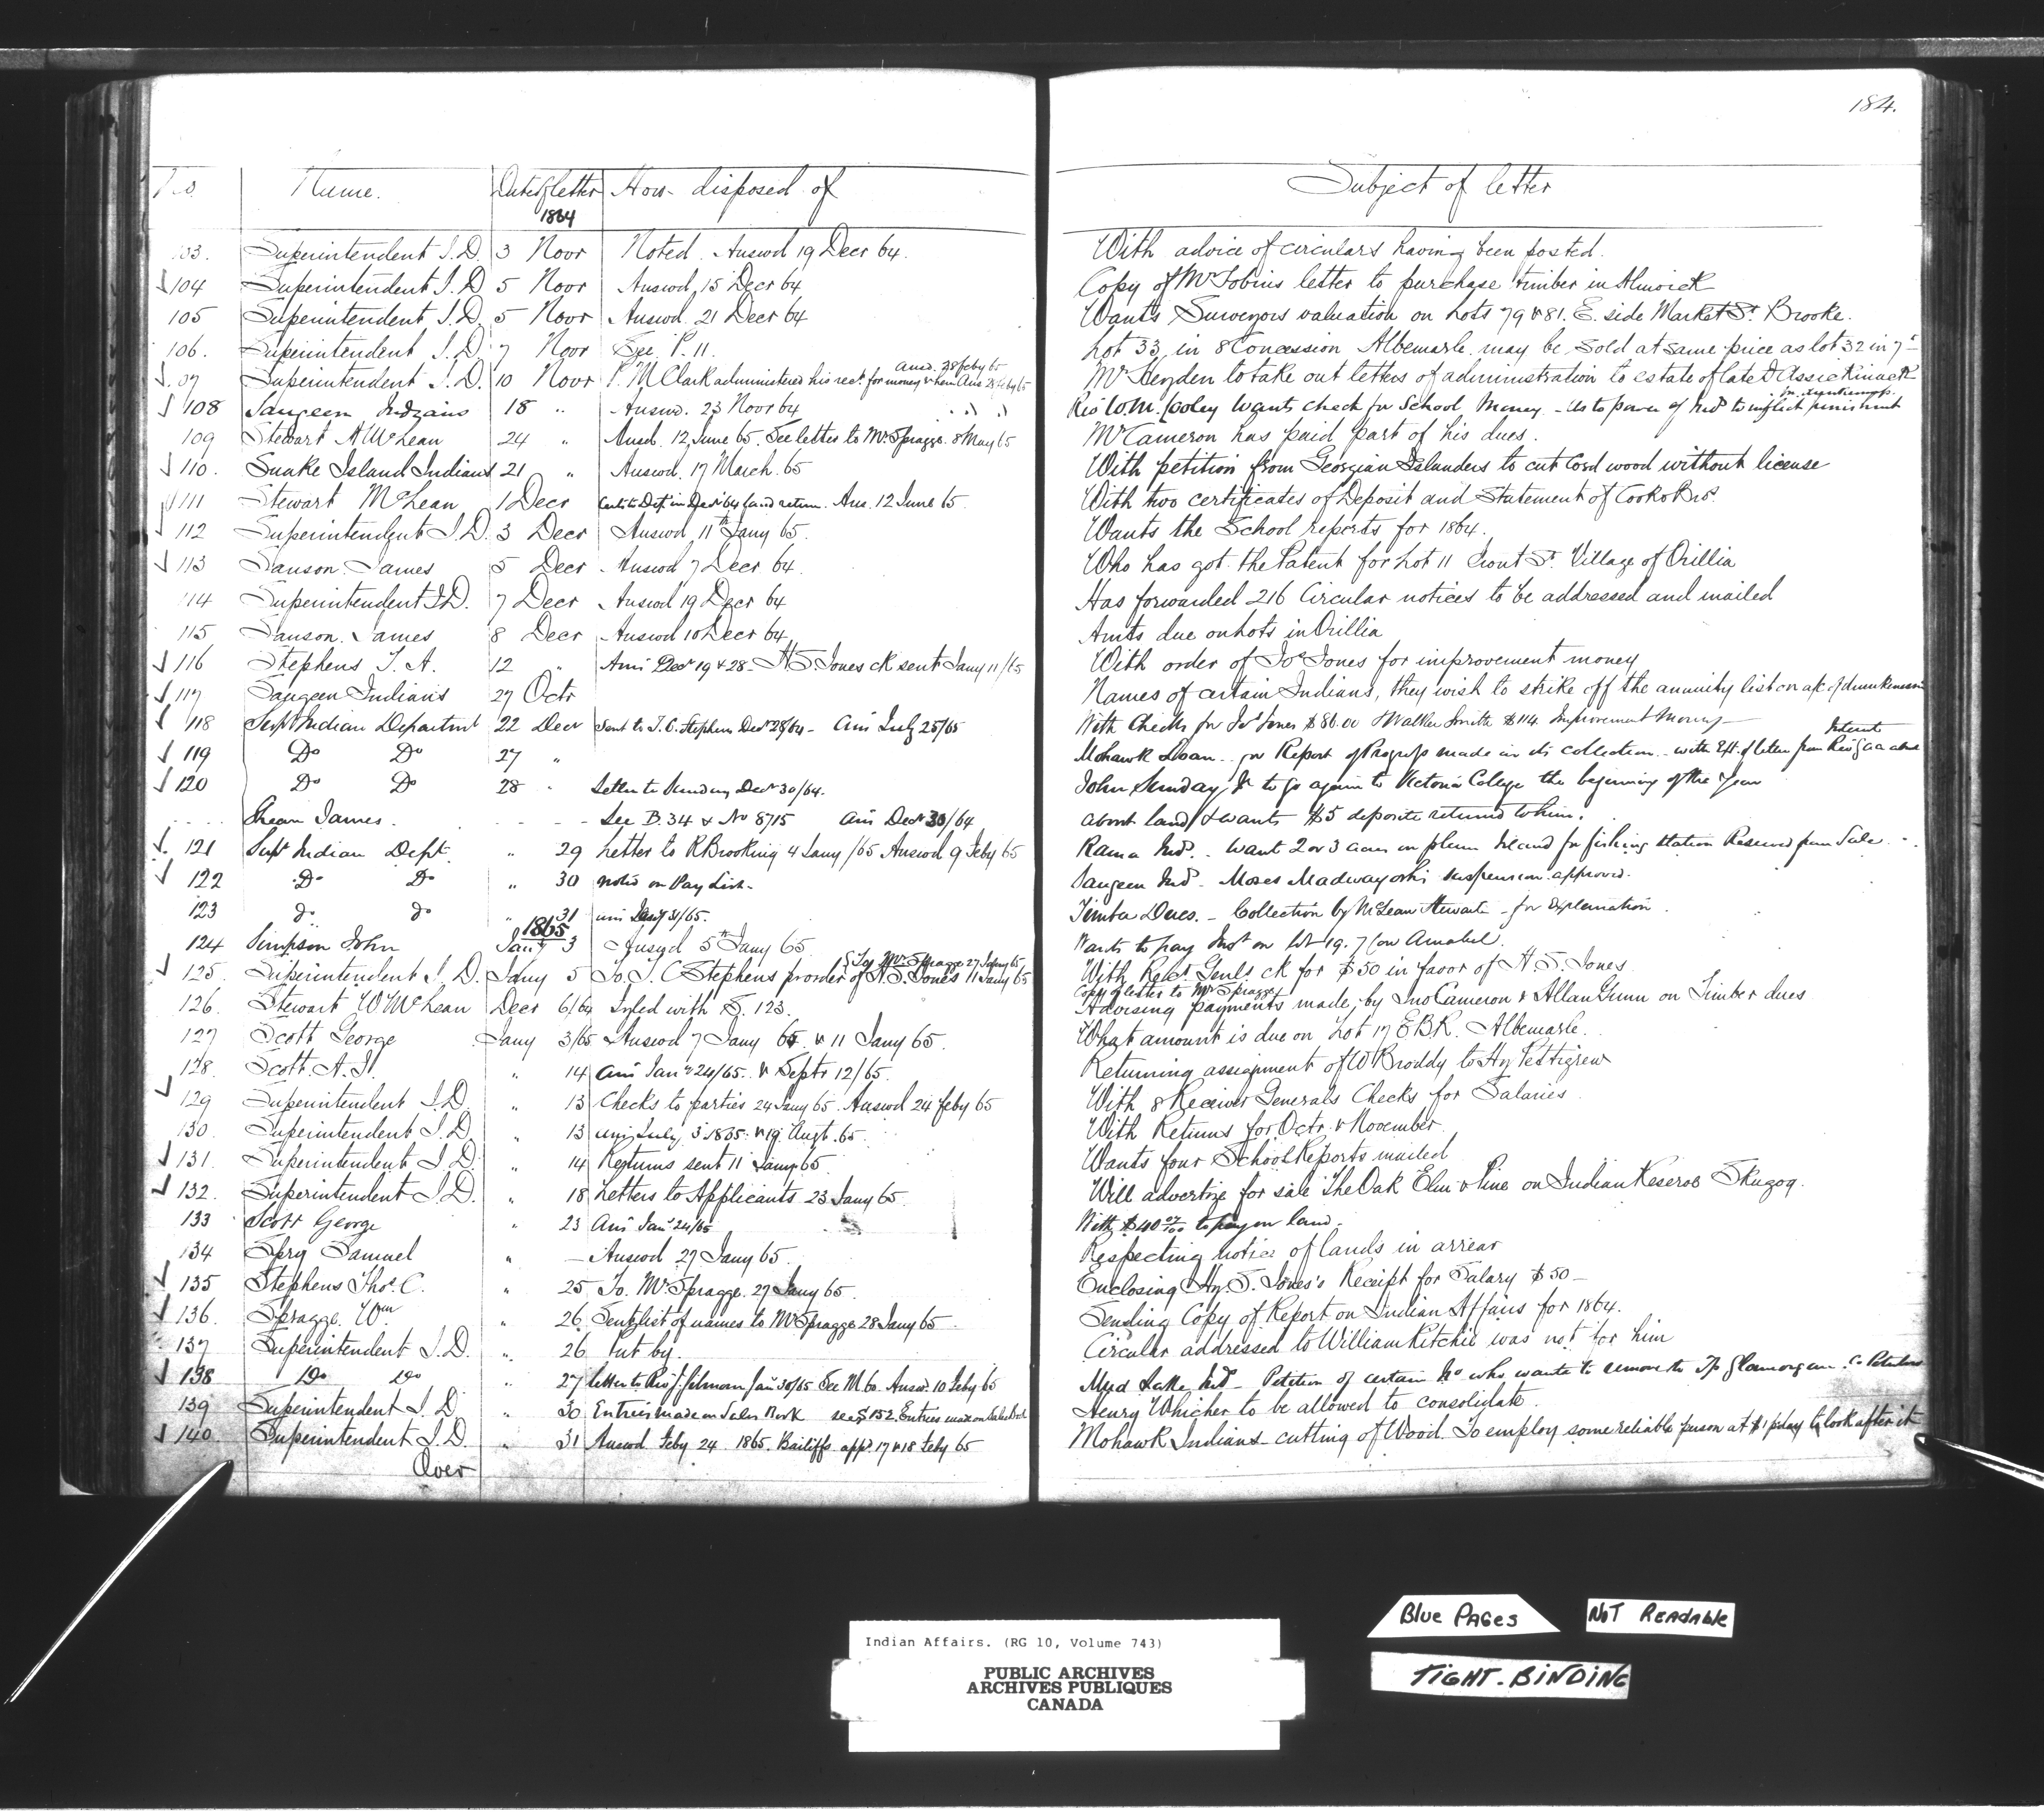 184.
No. Name. Date of letter How disposed of Subject of letter
1864
103. Superintendent I.D. 3 Novr Noted. Answd 19 Decr 64. With advice of circulars having been posted.
104 Superintendent I.D 5 Novr Answd 15 Decr 64 Copy of Mr Tobins letter to purchase timber in Alnwick
105 Superintendent I.D. 5 Novr Answd 21 Decr 64 Wants Surveyors valuation on Lots 79 & 81. E. side Market St. Brooke.
106. Superintendent I.D. 7 Novr See P. 11. Lot 33 in 8 Concession Albemarle may be sold at same price as lot 32 in 7
Ansd. 28 feby 65
107 Superintendent I.D. 10 Novr P. M Clark administered his rect. for money Mr Heyden to take out letters of administration to estate of late D Assickinack
108 Saugeen Indians 18 " Answd. 23 Novr 64 Revd W.M. Cooley wants check for School Money - As to power of Inds to inflict punishment
109 Stewart A McLean 24 " Ansd. 12 June 65. See letter to Mr. Spragge. 8 May 65 Mr Cameron has paid part of his dues.
110. Snake Island Indians 21 " Answd. 17 March. 65 With petition from Georgian Islanders to cut Cord wood without license
111 Stewart McLean 1 Decr Ans. 12 June 65. With two certificates of Deposit and Statement of Cook & Bros.
112 Superintendent I.D. 3 Decr Answd 11th Jany 65. Wants the School reports for 1864.
113 Sanson James 5 Decr Answd 7 Decr 64. Who has got the Patent for Lot 11 Front St. Village of Orillia
114 Superintendent I.D. 7 Decr Answd 19 Decr 64 Has forwarded 216 Circular notices to be addressed and mailed
115 Sanson. James 8 Decr Answd 10 Decr 64 Amts due on Lots in Orillia
116 Stephens T. A. 12 " Ans Decr 19 & 28 - H.S. Jones ck sent Jany 11/65 With order of Jos Jones for improvement money
117 Saugeen Indians 27 Octr Names of certain Indians, they wish to strike off the annuity list on a/c of drunkenness
118 Supt Indian Departmt 22 Decr Sent to T. C. Stephens Decr 28/64 - Ans July 25/65 With Checks for Jos Jones $86.00 & Walker Smith $114 Improvement Money
119 Do Do 27 " Mohawk Loan. for Report of Progress made in its collection - with Ext. of letter from
120 Do Do 28 " Letter to Sunday Decr 30/64. John Sunday Jr to go again to Victoria College the beginning of the Year
Shean James. - - - See B. 34 & No 8715 Ans Decr 30/64 about land & wants $5 deposite returned to him.
121 Supt Indian Dept. " 29 Letter to R Brooking 4 Jany /65 Answd 9 Feby 65 Rama Inds. want 2 or 3 acres on plum Island for fishing station Reserved from Sale
122 Do Do " 30 noted on Pay List - Saugeen Inds - Moses Madwayosh's suspension approved.
123 do do " 31 ans Jany 31/65. Timber Dues. - Collection by McLean Stewart - for explanation
1865
124 Simpson John Jany 3 Answd 5th Jany 65 Wants to pay Inst on lot 19. 7 Con Amabel.
To Mr Spragge 27 Jany 65
125. Superintendent I. D. Jany 5 To T. C Stephens pr order of H. S. Jones 11 Jany 65 With Recr Genls ck for $50 in favor of H. S. Jones
Copy of letter to Mr Spragge
126. Stewart W McLean Decr 6/64 Fyled with S. 123. Advising payments made, by Jno Cameron & Allan Gunn on Timber dues
127 Scott George Jany 3/65 Answd 7 Jany 65 & 11 Jany 65. What amount is due on Lot 17 E B R. Albemarle.
128. Scott. A. H. " 14 Ans Jany 24/65. & Septr 12/65. Returning assignment of W Broddy to Hy Pettigrew
129 Superintendent I.D. " 13 Checks to parties 24 Jany 65. Answd 24 Feby 65 With 8 Receiver Generals Checks for Salaries.
130. Superintendent I.D. " 13 ans July 3 1865. & 19 Augt. 65. With Returns for Octr. & November.
131. Superintendent I.D. " 14 Returns sent 11 Jany 65. Wants four School Reports mailed
132. Superintendent I.D. " 18 Letters to Applicants 23 Jany 65. Will advertize for sale The Oak Elm & Pine on Indian Reserve Skugog.
133 Scott George " 23 Ans Jany 24/65 With $40 07/100 to pay on land.
134 Spry Samuel " - Answd 27 Jany 65. Respecting notice of lands in arrear
135 Stephens Thos. C. " 25 To. Mr Spragge. 27 Jany 65. Enclosing Hy. S. Jones's Receipt for Salary $50 -
136. Spragge. Wm " 26 Sent list of names to Mr Spragge 28 Jany 65 Sending Copy of Report on Indian Affairs for 1864.
137 Superintendent I.D. " 26 Put by. Circular addressed to William Ritchie was not for him
138 Do do " 27 letter to Revd J. Gilmour Jany 30/65 See M. 60. Answd. 10 Feby 65 Mud Lake Inds - Petition of certain who wants to remove to Tp Glamorgan. Co Peterboro
139 Superintendent I.D. " 30 Entries made in Sales Book see S 152. Entries made on Sales Book Henry Whicher to be allowed to consolidate.
140. Superintendent I.D. " 31 Answd Feby 24 1865. Bailiffs appd 17 & 18 Feby 65 Mohawk Indians - cutting of Wood. To employ some reliable person at $1 p day to look after it
Over
Blue Pages
Not Readable
Tight-Binding
Indian Affairs. (RG 10, Volume 743)
PUBLIC ARCHIVES
ARCHIVES PUBLIQUES
CANADA